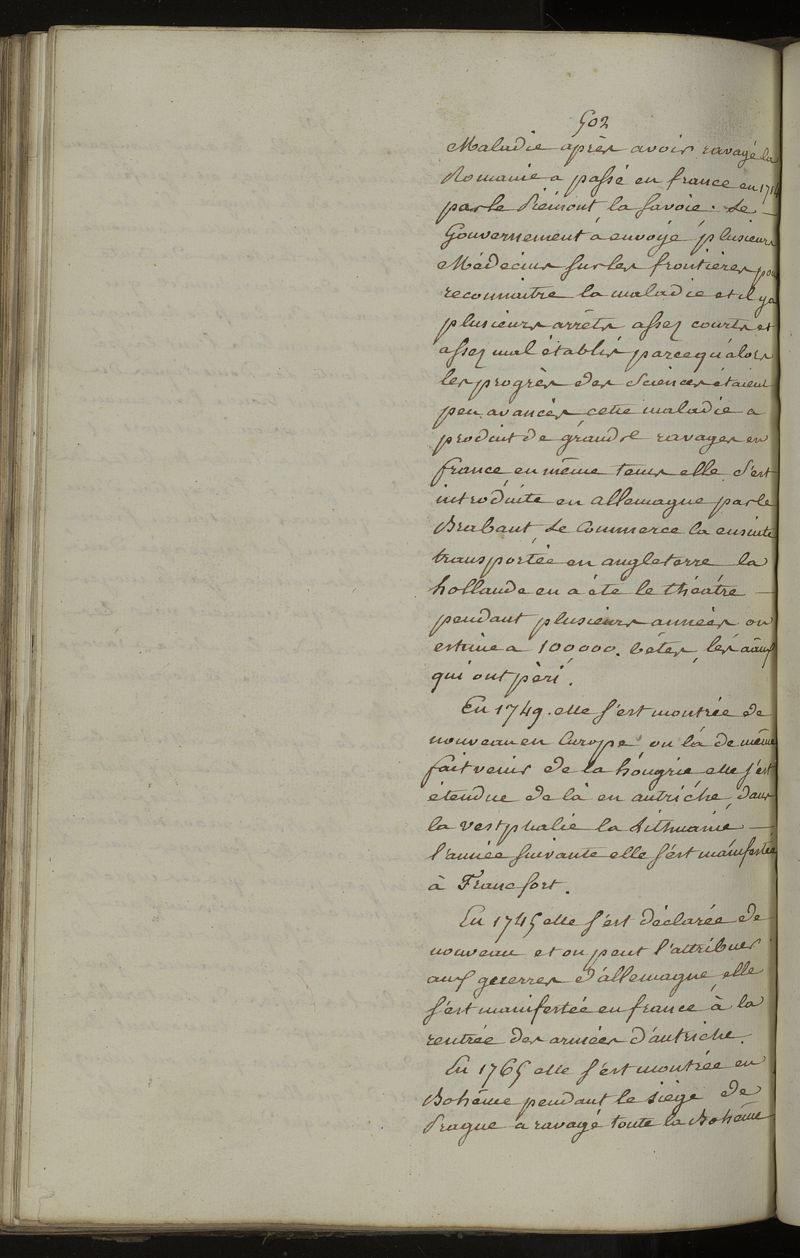 502
Maladie après avoir ravagé la
Romanie a passé en france en 1714
par le Piémont la Savoie. Le
Gouvernement a envoyé plusieurs
Médecins sur les frontières pour
reconnaitre la maladie et il y a
plusieurs arrêts assez courts et
assez mal établis parcequ'alors
les progrès des Sciences étaient
peu avancés cette maladie a
produit de grands ravages en
france en même tems elle s'est
introduite en allemagne par le
Brabant, Le Commerce la ensuite
transportée en angleterre la
hollande en a été le théatre
pendant plusieurs années on
estime a 100000. bêtes, les
qui ont péri.
En 1749. elle s'est montrée de
nouveau en Europe on l'a de même
fait venir de la hongrie elle s'est
étendue de là en autriche, dans
la vestphalie la Lithuanie
l'année suivante elle s'est manifestée
à Francfort.
En 1745 elle s'est déclarée de
nouveau et on peut l'attribuer
aux guerres d'allemagne, elle
s'est manifestée en france à la
rentrée des armées d'autriche.
En 1765 elle s'est montrée en
Bohême pendant le siège de
Prague a ravagé toute la Bohême